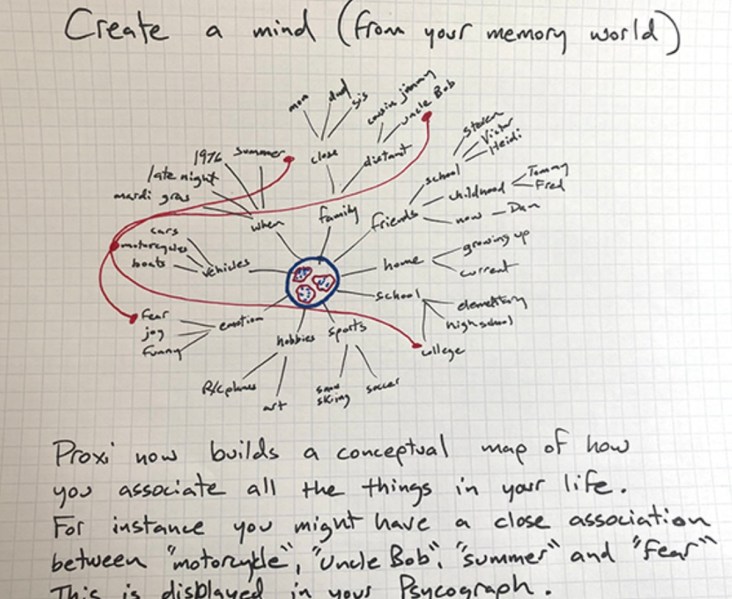 Create a mind (from your memory world)
mom dad sis
cousin jimmy
uncle Bob
close
distant
family
1976 summer
late night
mardi gras
when
steven
Victor
Heidi
school
childhood
Tommy
Fred
now — Dan
friends
cars
motorcycles
boats
vehicles
home
growing up
current
school
elementary
high school
college
fear
joy
funny
emotion
hobbies
R/c planes
art
sports
snow
skiing
soccer
Proxi now builds a conceptual map of how
you associate all the things in your life.
For instance you might have a close association
between "motorcycle", "Uncle Bob", "summer" and "fear"
This is displayed in your Psycograph.